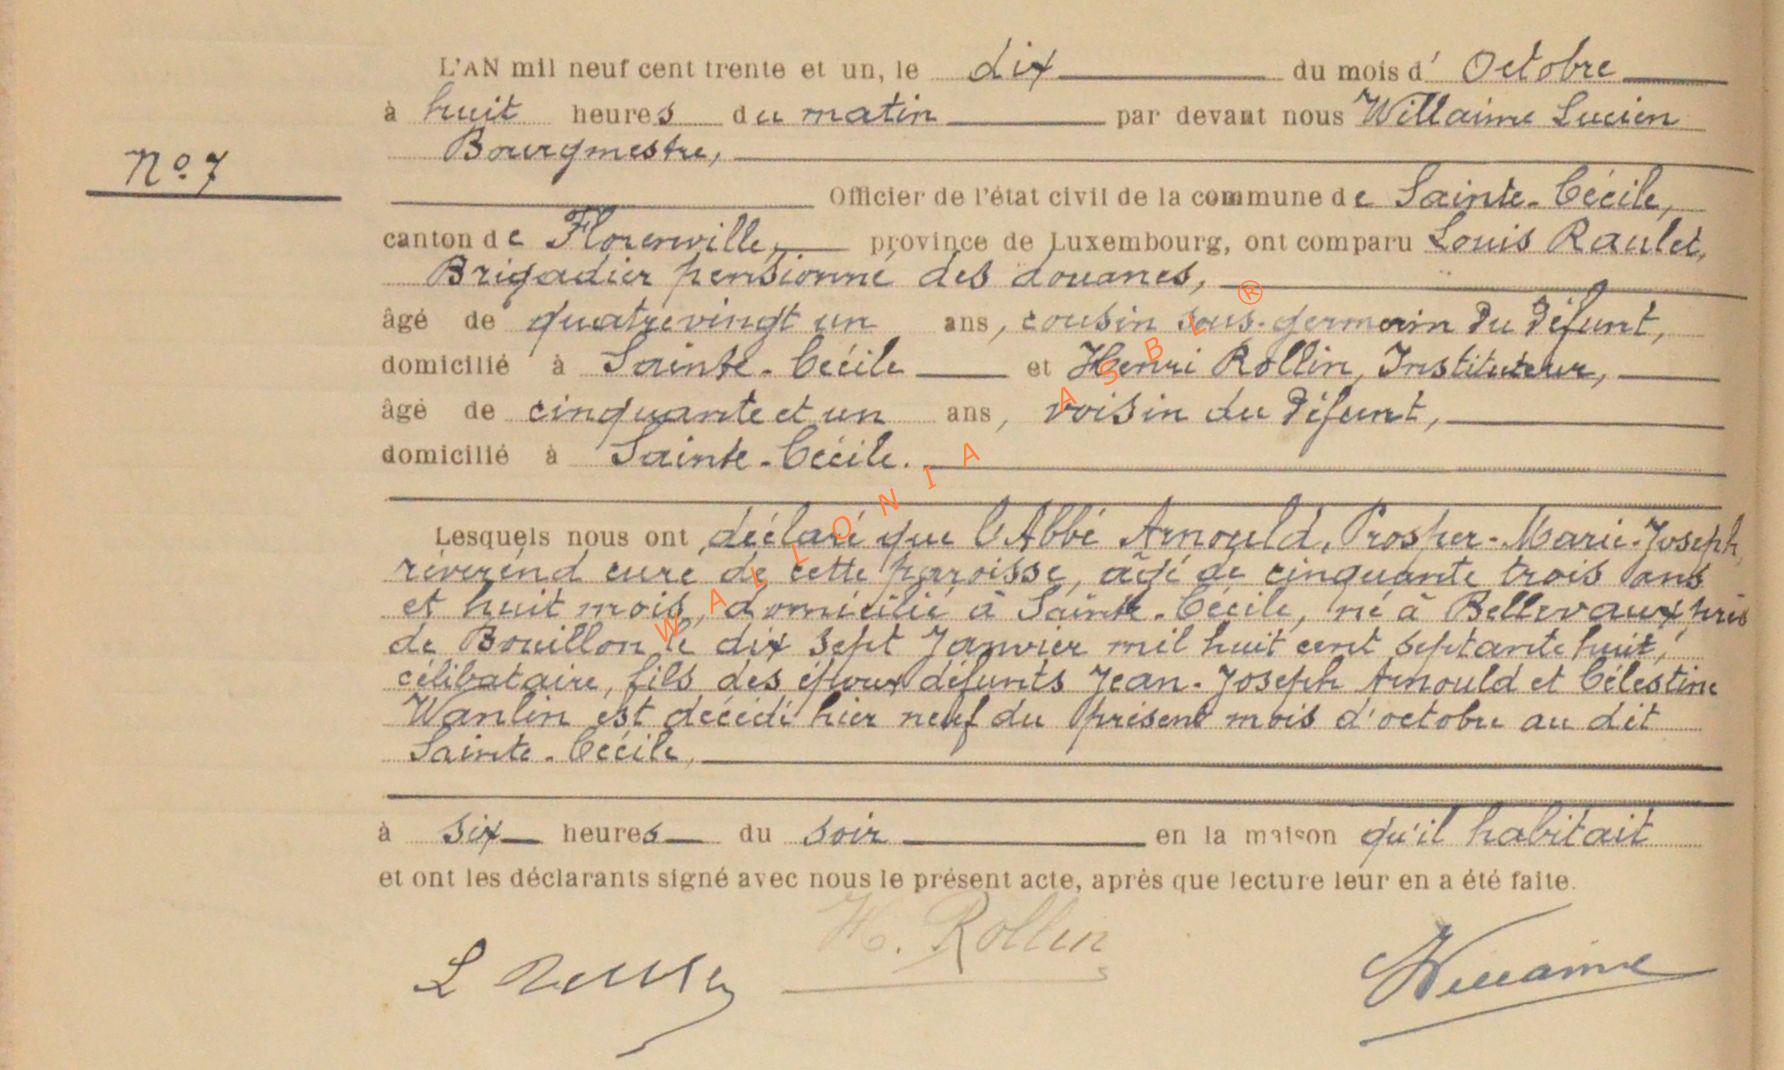 L'AN mil neuf cent trente et un, le dix du mois d' Octobre
à huit heures du matin par devant nous Willaime Lucien
Bourgmestre,
No 7
Officier de l'état civil de la commune de Sainte-Cécile,
canton de Florenville, province de Luxembourg, ont comparu Louis Raulet,
Brigadier pensionné des douanes,
âgé de quatrevingt un ans, cousin sous-germain du défunt,
domicilié à Sainte-Cécile et Henri Rollin, Instituteur,
âgé de cinquante et un ans, voisin du défunt,
domicilié à Sainte-Cécile.
Lesquels nous ont déclaré que l'Abbé Arnould, Prosper-Marie-Joseph,
révérend curé de cette paroisse, âgé de cinquante trois ans
et huit mois, domicilié à Sainte-Cécile, né à Bellevaux, près
de Bouillon le dix sept Janvier mil huit cent septante huit,
célibataire, fils des époux défunts Jean-Joseph Arnould et Célestine
Wanlin est décédé hier neuf du présent mois d'octobre au dit
Sainte-Cécile,
à six heures du soir en la maison qu'il habitait
et ont les déclarants signé avec nous le présent acte, après que lecture leur en a été faite.
H. Rollin
L Raulet
Willaime
WALLONIA ASBL ®